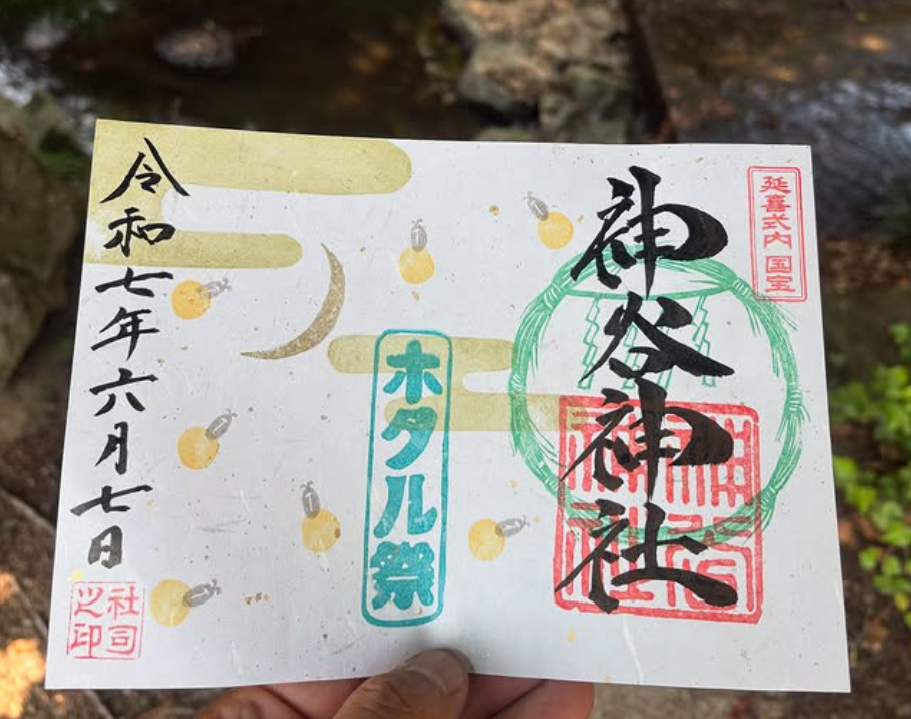 延喜式内 国宝
神谷神社
神谷神社
ホタル祭
令和七年六月七日
社司之印